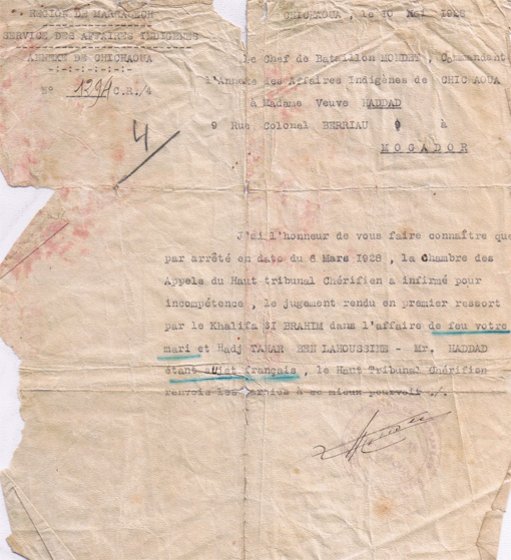 REGION DE MARRAKECH
SERVICE DES AFFAIRES INDIGENES
ANNEXE DE CHICHAOUA
-:-:-:-:-:-
N° 1391 C.R./4
4
CHICHAOUA, le 10 Mai 1928
Le Chef de Bataillon MONDET, Commandant
l'Annexe des Affaires Indigènes de CHICHAOUA
à Madame Veuve HADDAD
9 Rue Colonel BERRIAU à
MOGADOR
J'ai l'honneur de vous faire connaître que
par arrêté en date du 6 Mars 1928, la Chambre des
Appels du Haut tribunal Chérifien a infirmé pour
incompétence, le jugement rendu en premier ressort
par le Khalifa SI BRAHIM dans l'affaire de feu votre
mari et Hadj TAHAR BEN LAHOUSSINE - Mr. HADDAD
étant sujet français, le Haut Tribunal Chérifien
renvoie les parties à se mieux pourvoir ./.